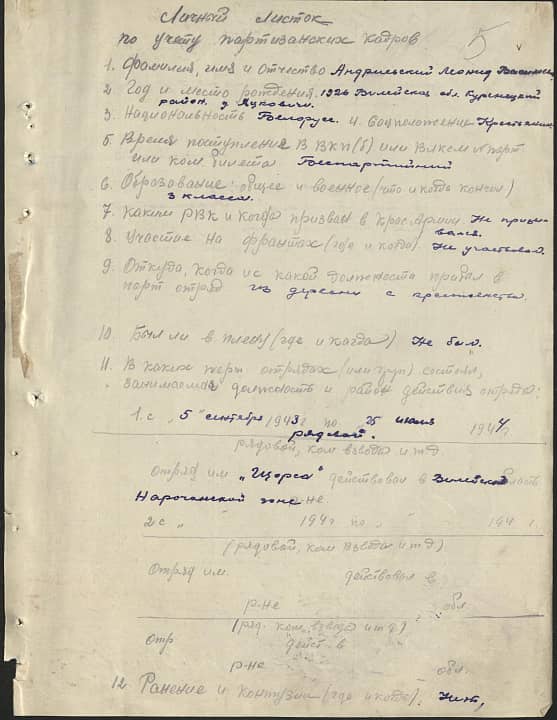 Личный Листок
по учету партизанских кадров
5
1. Фамилия, имя и отчество Андриевский Леонид
2. Год и место рождения. 1926 Вилейская обл. Куренецкий
район. д Яцковичи.
3. Национольность Белорус. 4. Соцположение Крестьянин
5. Время поступления в ВКП(б) или ВЛКСМ № парт
или ком. билета Беспартийный
6. Образование: общее и военное (что и когда кончил)
3 класса.
7. Каким РВК и когда призван в Крас. Армию Не призы-
вался.
8. Участие на фронтах (где и когда). Не участвовал.
9. Откуда, когда и с какой должности прибыл в
парт отряд из деревни с крестьянства.
10. Был ли в плену (где и когда) Не был.
11. В каких парт отрядах (или груп) состоял,
занимаемая должность и район действия отряда:
1. с „5" сентября 1943 г по 25 июля 1944 г
рядовой.
рядовой, ком взвода и т д.
Отряд им „Щорса" действовал в Вилейской область
Нарочанской зоне р-не.
2 с „ 194 г по „ 194 г.
(рядовой, ком взвода и т д)
Отряд им. действовал в
р-не обл
(ряд. ком. взвода и т д)
Отр действ. в
р-не обл.
12 Ранение и контузии (где и когда). Нет,